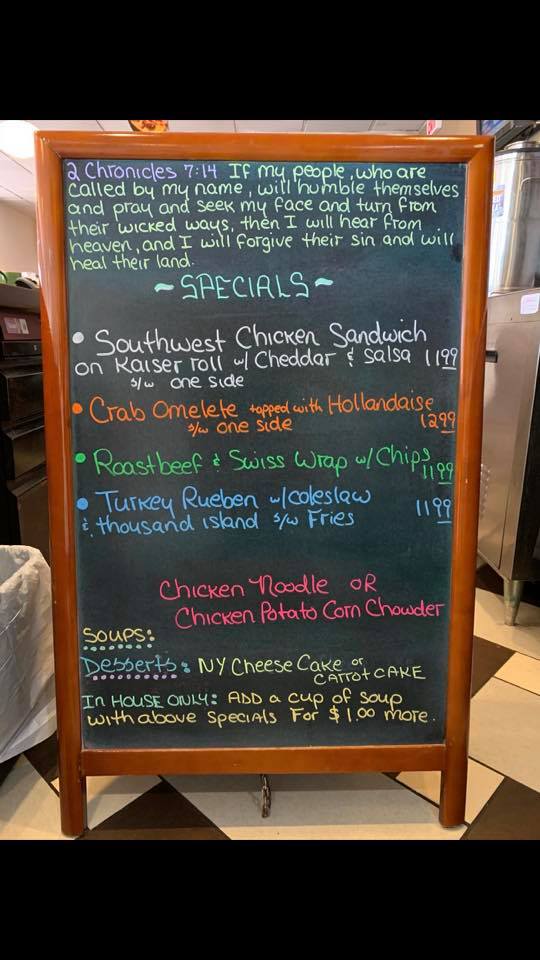 2 Chronicles 7:14 If my people, who are
called by my name, will humble themselves
and pray and seek my face and turn from
their wicked ways, then I will hear from
heaven, and I will forgive their sin and will
heal their land.
~SPECIALS~
• Southwest Chicken Sandwich
on Kaiser roll w/ Cheddar & Salsa 11 99
s/w one side
• Crab Omelete topped with Hollandaise
s/w one side 12 99
• Roastbeef & Swiss Wrap w/ Chips
11 99
• Turkey Rueben w/coleslaw 11 99
& thousand island s/w Fries
Chicken Noodle OR
Chicken Potato Corn Chowder
Soups:
Desserts: NY Cheese Cake or
CARROT CAKE
In House Only: ADD a cup of soup
with above specials For $1.00 more.